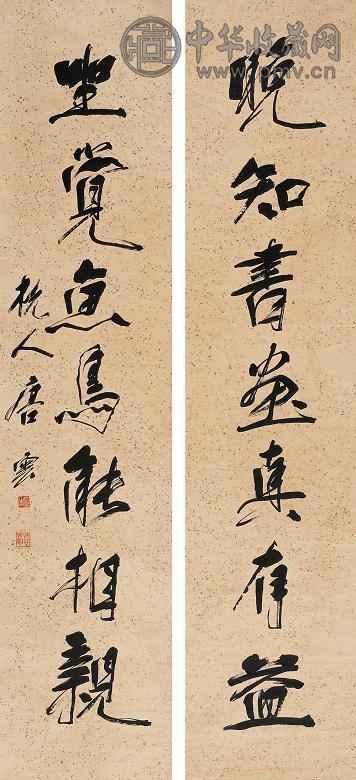 中华收藏网
www.pmv.cn
晚知書畫真有益
坐覺魚鳥能相親
杭人唐雲